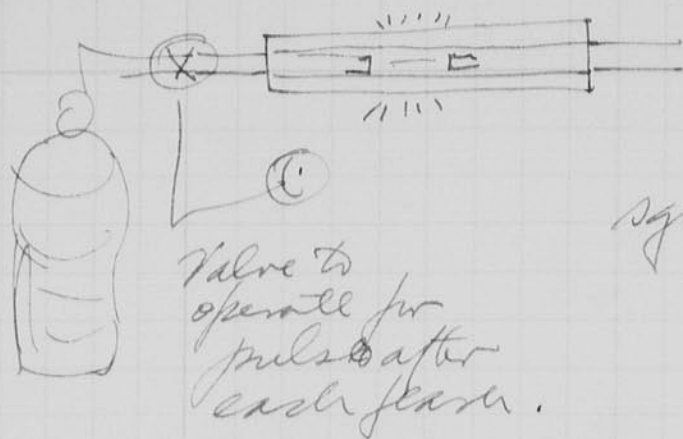 sg
Valve to
operate for
pulse after
each flash.